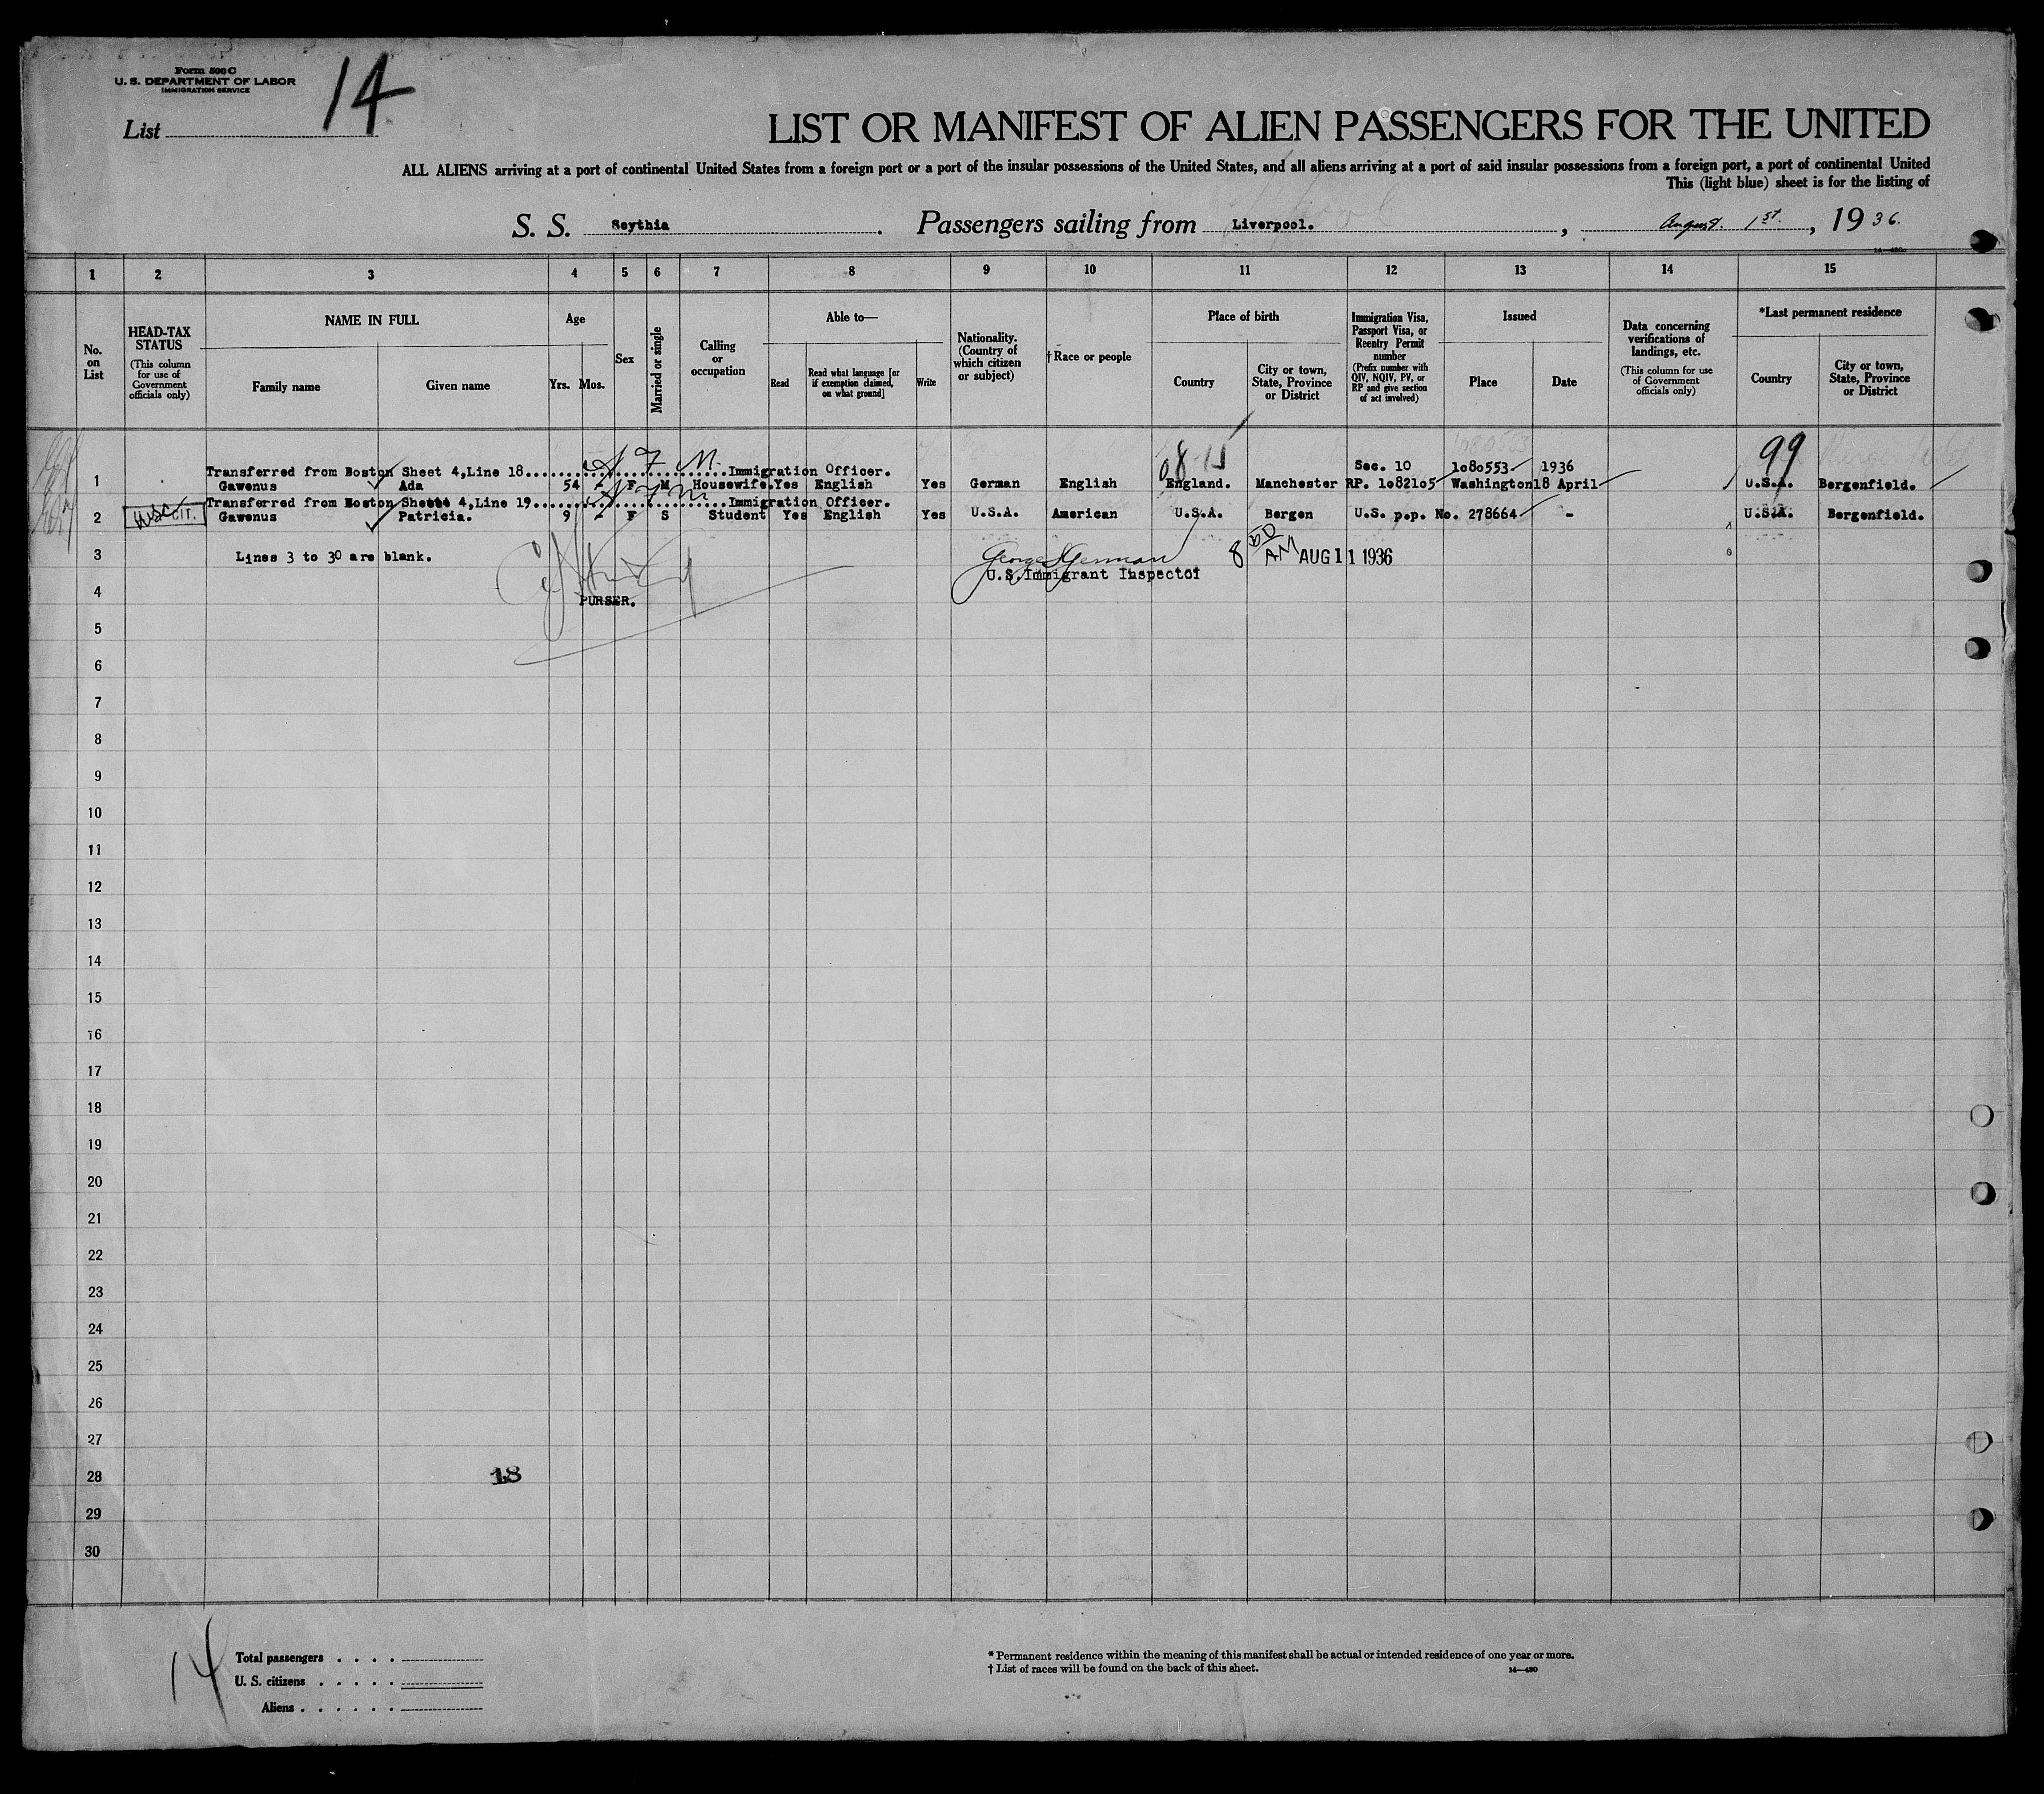 Form 500 C
U. S. DEPARTMENT OF LABOR
IMMIGRATION SERVICE
List 14
LIST OR MANIFEST OF ALIEN PASSENGERS FOR THE UNITED
ALL ALIENS arriving at a port of continental United States from a foreign port or a port of the insular possessions of the United States, and all aliens arriving at a port of said insular possessions from a foreign port, a port of continental United
This (light blue) sheet is for the listing of
S. S. Scythia. Passengers sailing from Liverpool. , August. 1st. , 1936.
14—430
1 2 3 4 5 6 7 8 9 10 11 12 13 14 15
No. on List
HEAD-TAX STATUS
(This column for use of Government officials only)
NAME IN FULL
Family name
Given name
Age
Yrs. Mos.
Sex
Married or single
Calling or occupation
Able to—
Read
Read what language [or if exemption claimed, on what ground]
Write
Nationality. (Country of which citizen or subject)
†Race or people
Place of birth
Country
City or town, State, Province or District
Immigration Visa, Passport Visa, or Reentry Permit number
(Prefix number with QIV, NQIV, PV, or RP and give section of act involved)
Issued
Place
Date
Data concerning verifications of landings, etc.
(This column for use of Government officials only)
*Last permanent residence
Country
City or town, State, Province or District
F M.
08-11
1080553
99
Transferred from Boston Sheet 4,Line 18..........................Immigration Officer. Sec. 10 1080553 1936
1 Gawenus Ada 54 - F M Housewife.Yes English Yes German English England. Manchester RP. 1082105 Washington 18 April U.S.A. Bergenfield.
Transferred from Boston Sheet 4,Line 19..........................Immigration Officer.
2 USC CIT. Gawenus Patricia. 9 - F S Student Yes English Yes U.S.A. American U.S.A. Bergen U.S. p.p. No. 278664 - U.S.A. Bergenfield.
3 Lines 3 to 30 are blank.
8 AM AUG 11 1936
U.S.Immigrant Inspector
4 PURSER.
5
6
7
8
9
10
11
12
13
14
15
16
17
18
19
20
21
22
23
24
25
26
27
28 18
29
30
14
Total passengers . . . .
U. S. citizens . . . . .
Aliens . . . . . .
* Permanent residence within the meaning of this manifest shall be actual or intended residence of one year or more.
† List of races will be found on the back of this sheet.
14—430